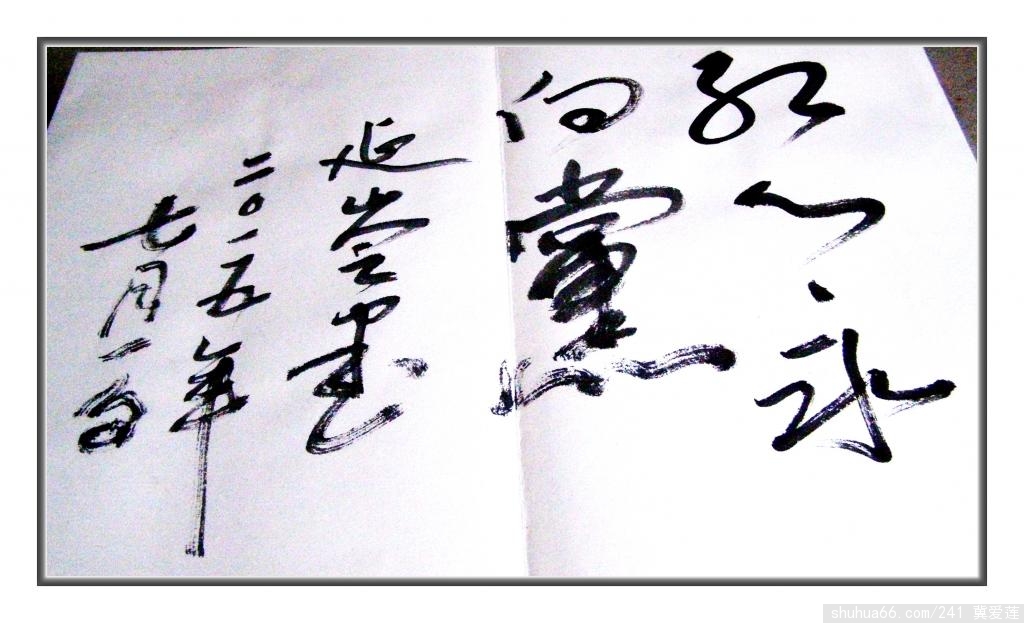 红心永
向黨
延書
二〇一五年
七月一日
shuhua66.com/241 冀爱莲